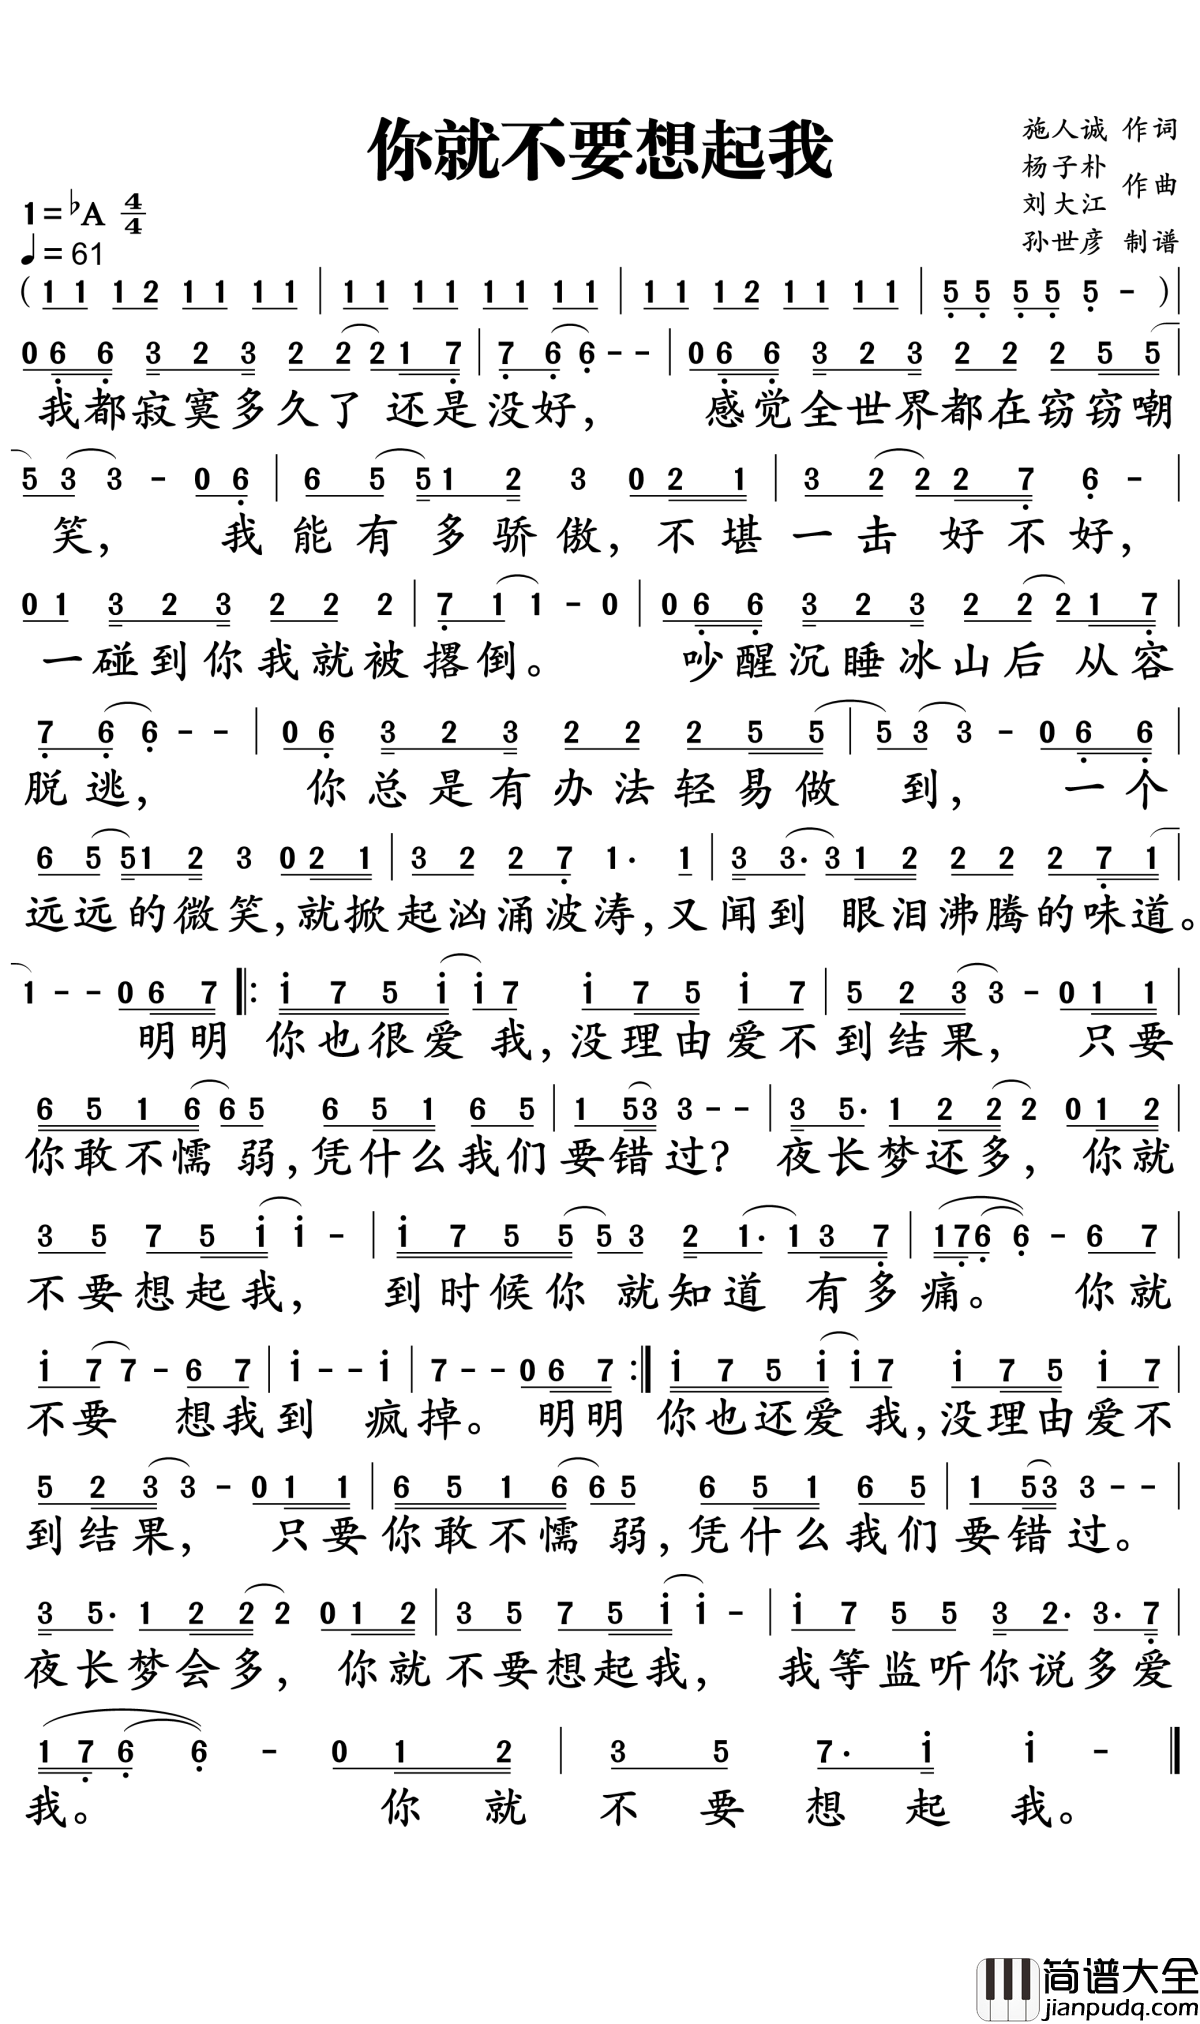 你就不要想起我
施人诚 作词
杨子朴
刘大江 作曲
孙世彦 制谱
1=♭A 4/4
♩=61
(1 1 1 2 1 1 1 1 | 1 1 1 1 1 1 1 1 | 1 1 1 2 1 1 1 1 | 5 5 5 5 5 - )|
0 6 6 3 2 3 2 2 2 1 7 | 7 6 6 - - | 0 6 6 3 2 3 2 2 2 5 5 |
我都寂寞多久了 还是没好， 感觉全世界都在窃窃嘲
5 3 3 - 0 6 | 6 5 5 1 2 3 0 2 1 | 3 2 2 2 7 6 - |
笑， 我能有多骄傲，不堪一击好不好，
0 1 3 2 3 2 2 2 | 7 1 1 - 0 | 0 6 6 3 2 3 2 2 2 1 7 |
一碰到你我就被撂倒。 吵醒沉睡冰山后 从容
7 6 6 - - | 0 6 3 2 3 2 2 2 5 5 | 5 3 3 - 0 6 6 |
脱逃， 你总是有办法轻易做 到， 一个
6 5 5 1 2 3 0 2 1 | 3 2 2 7 1· 1 | 3 3· 3 1 2 2 2 2 7 1 |
远远的微笑，就掀起汹涌波涛，又闻到 眼泪沸腾的味道。
1 - - 0 6 7 ‖: i 7 5 i i 7 i 7 5 i 7 | 5 2 3 3 - 0 1 1 |
明明 你也很爱 我，没理由爱不到结果， 只要
6 5 1 6 6 5 6 5 1 6 5 | 1 5 3 3 - - | 3 5· 1 2 2 2 0 1 2 |
你敢不懦 弱，凭什么我们要错过？ 夜长梦还多， 你就
3 5 7 5 i i - | i 7 5 5 5 3 2 1· 1 3 7 | 1 7 6 6 - 6 7 |
不要想起我， 到时候你 就知道 有多痛。 你就
i 7 7 - 6 7 | i - - i | 7 - - 0 6 7 :‖ i 7 5 i i 7 i 7 5 i 7 |
不要 想我到 疯掉。 明明 你也还爱 我，没理由爱不
5 2 3 3 - 0 1 1 | 6 5 1 6 6 5 6 5 1 6 5 | 1 5 3 3 - - |
到结果， 只要你敢不懦 弱，凭什么我们要错过。
3 5· 1 2 2 2 0 1 2 | 3 5 7 5 i i - | i 7 5 5 3 2· 3· 7 |
夜长梦会多， 你就不要想起我， 我等监听你说多爱
1 7 6 6 - 0 1 2 | 3 5 7· i i - ‖
我。 你就不要想起我。
简谱大全
jianpudq.com